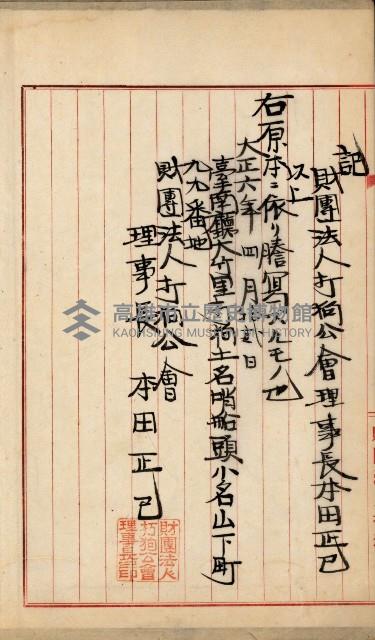 記
財團法人打狗公會理事長本田正己
以上
右原本ニ依リ謄寫スルモノ也
大正六年四月 日
臺南廳大竹里打狗土名哨船頭小名山下町
九九番地
財團法人打狗公會
理事長 本田正己
財團法人
打狗公會
理事長印
高雄市立歷史博物館
KAOHSIUNG MUSEUM OF HISTORY